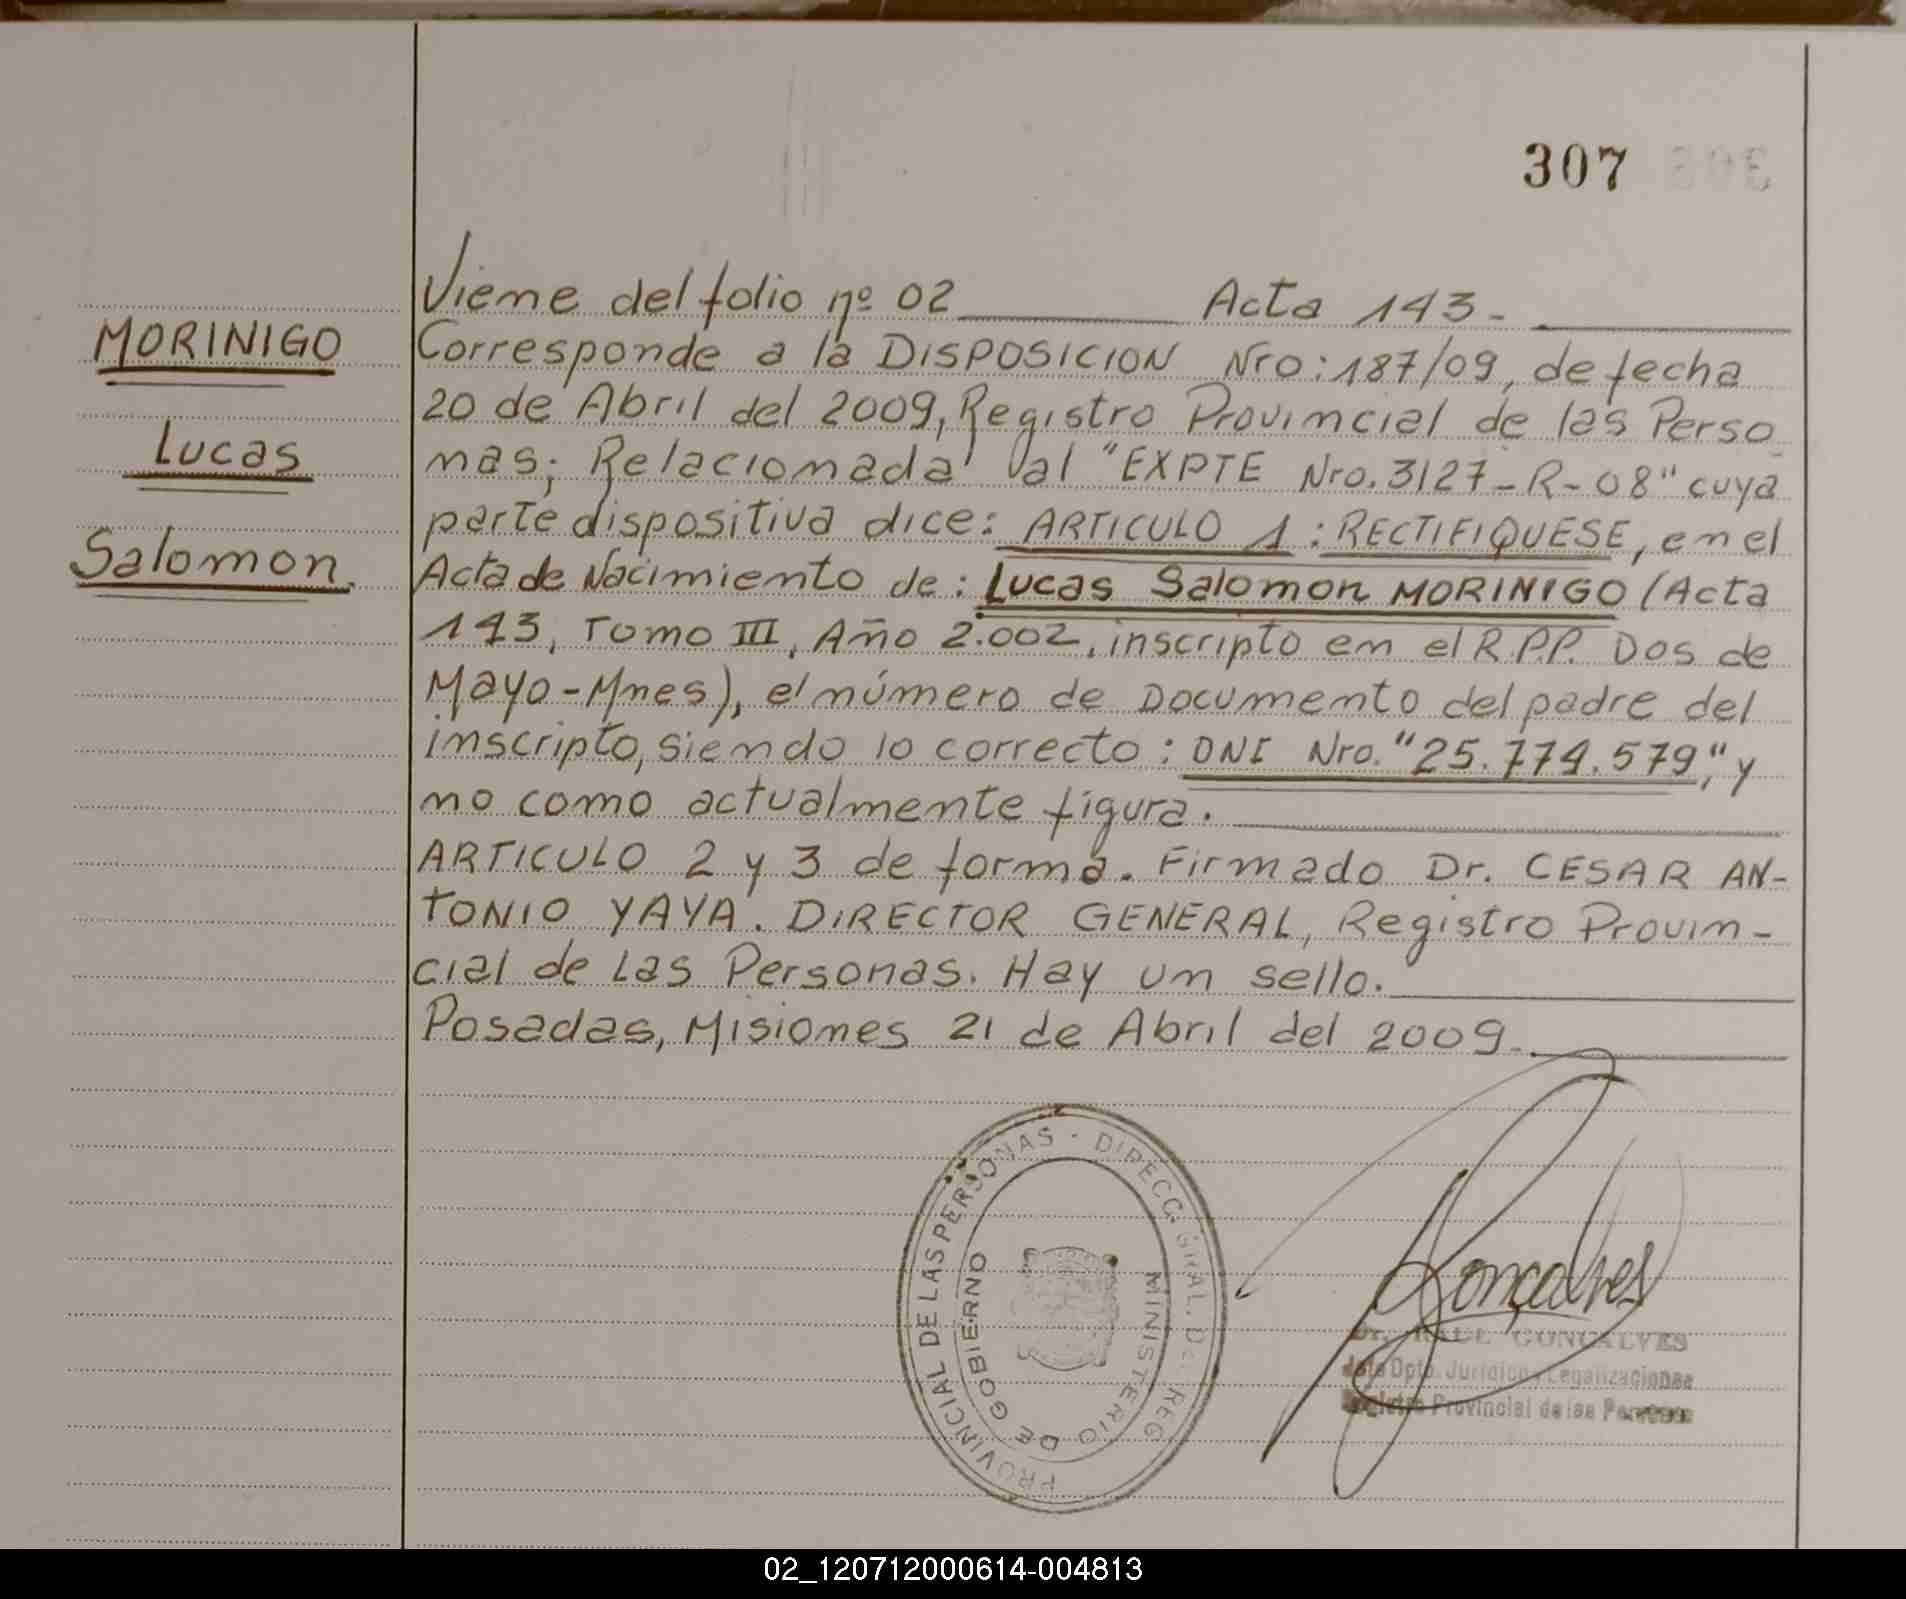 307
Viene del folio nº 02 Acta 143.-
MORINIGO
Lucas
Salomon.
Corresponde a la DISPOSICION Nro: 187/09, de fecha
20 de Abril del 2009, Registro Provincial de las Perso
nas; Relacionada al "EXPTE Nro. 3127-R-08" cuya
parte dispositiva dice: ARTICULO 1: RECTIFIQUESE, en el
Acta de Nacimiento de: Lucas Salomon MORINIGO (Acta
143, Tomo III, Año 2.002, inscripto en el R.P.P. Dos de
Mayo-Mnes), el número de Documento del padre del
inscripto, siendo lo correcto: DNI Nro. "25.774.579," y
no como actualmente figura.
ARTICULO 2 y 3 de forma. Firmado Dr. CESAR AN-
TONIO YAYA. DIRECTOR GENERAL, Registro Provin-
cial de Las Personas. Hay un sello.
Posadas, Misiones 21 de Abril del 2009.-
PROVINCIAL DE LAS PERSONAS - DIRECC. GRAL. DEL REG.
MINISTERIO DE GOBIERNO
Gonçalves
Dr. RAUL GONCALVES
Jefe Dpto. Jurídico y Legalizaciones
Registro Provincial de las Personas
02_120712000614-004813